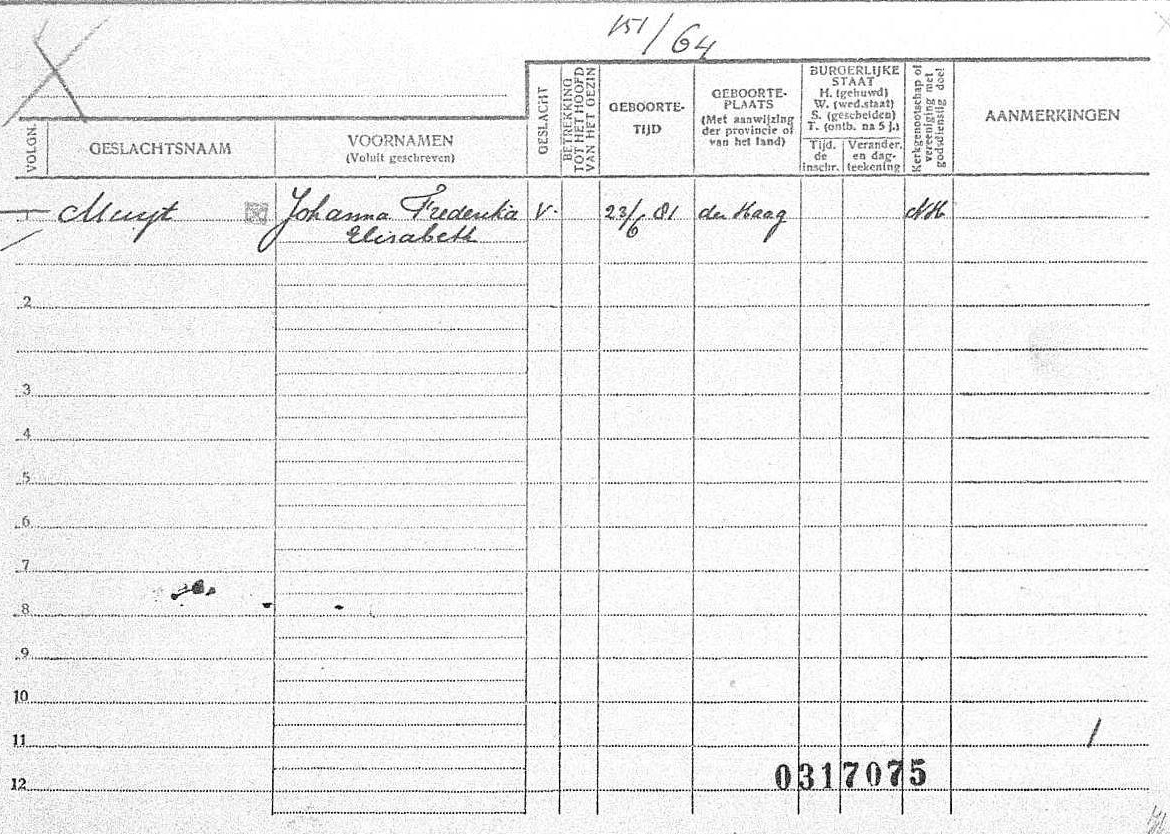 151/64
VOLGN.
GESLACHTSNAAM
VOORNAMEN
(Voluit geschreven)
GESLACHT
BETREKKING
TOT HET HOOFD
VAN HET GEZIN
GEBOORTE-
TIJD
GEBOORTE-
PLAATS
(Met aanwijzing
der provincie of
van het land)
BURGERLIJKE
STAAT
H. (gehuwd)
W. (wed.staat)
S. (gescheiden)
T. (ontb. na 5 j.)
Tijd.
de
inschr.
Verander.
en dag-
teekening
Kerkgenootschap of
vereeniging met
godsdienstig doel
AANMERKINGEN
1 Muyt Johanna Frederika V. 23/6 81 den Haag NH
Elisabeth
2
3
4
5
6
7
8
9
10
11
12
0317075